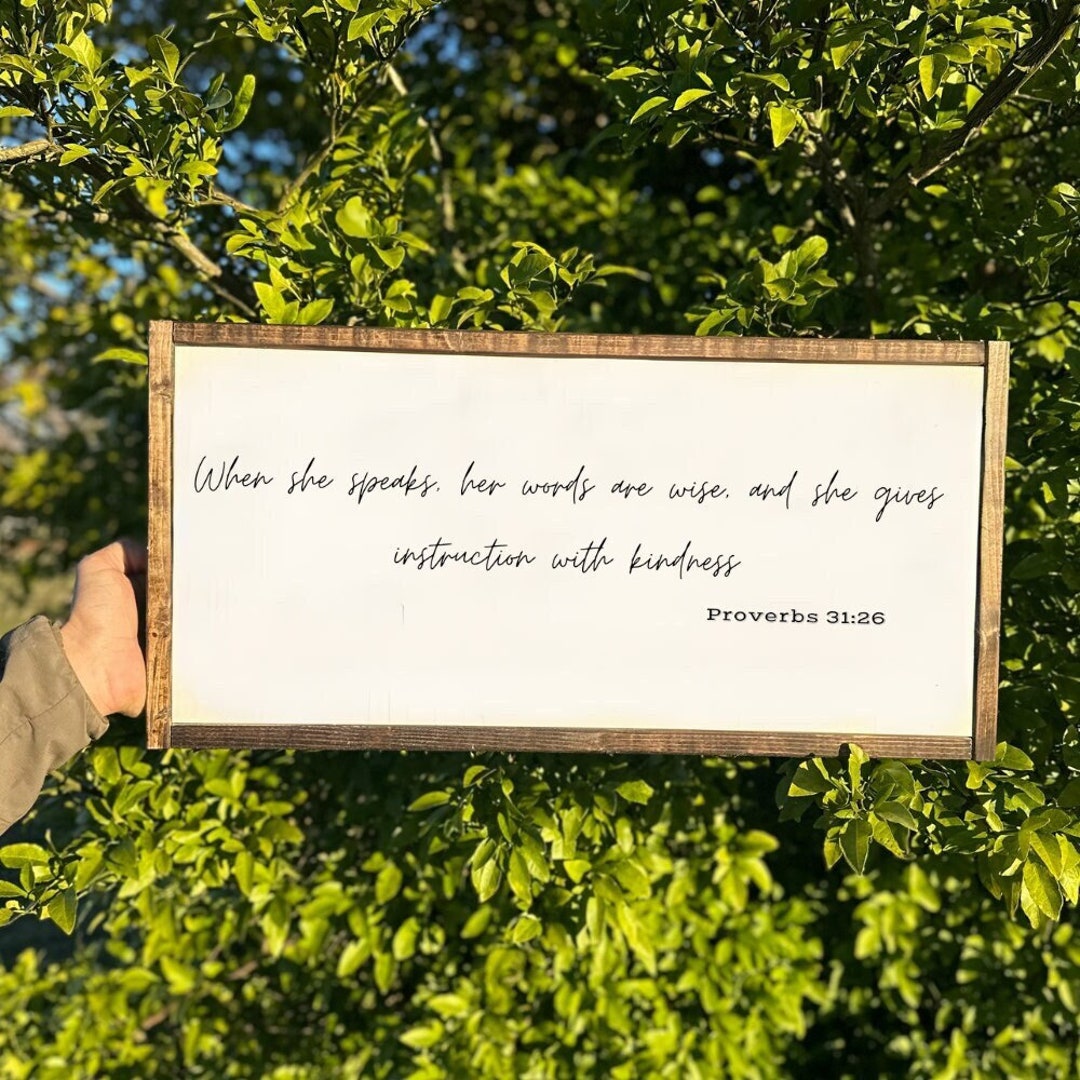 When she speaks, her words are wise, and she gives
instruction with kindness
Proverbs 31:26